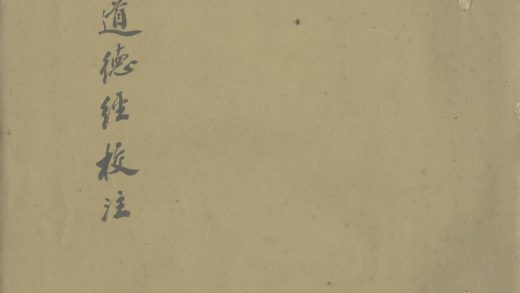 道德經校注